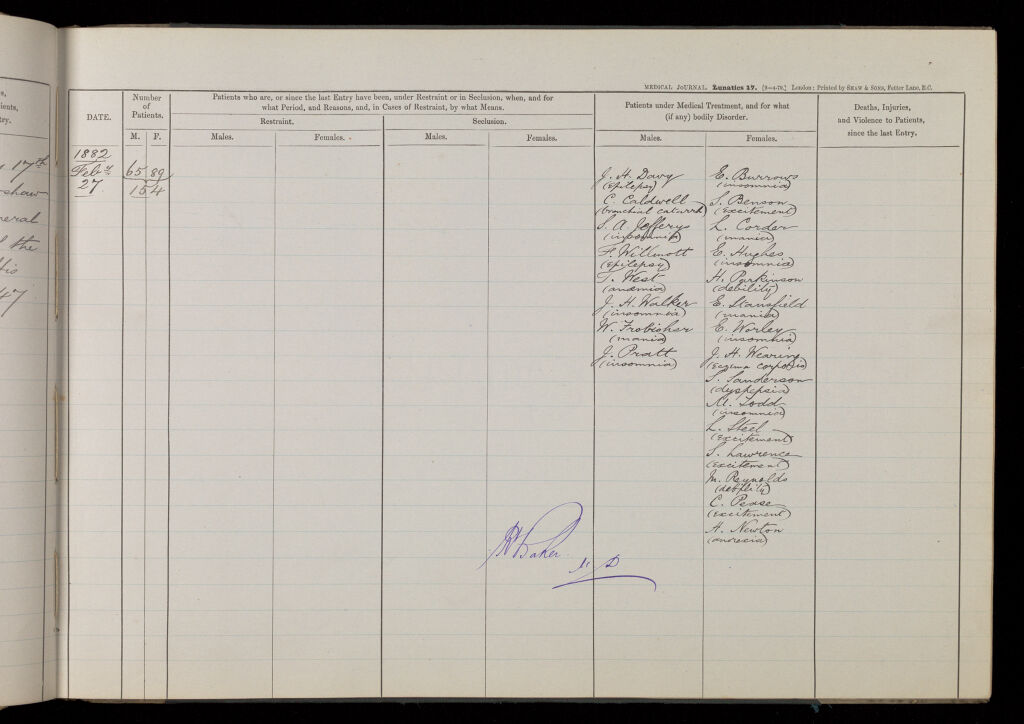 s,
ients,
try.
17th
shaw
neral
the
his
47
MEDICAL JOURNAL. Lunatics 17. [9—4-79.] London: Printed by SHAW & SONS, Fetter Lane, E.C.
DATE.
Number
of
Patients.
M. F.
Patients who are, or since the last Entry have been, under Restraint or in Seclusion, when, and for
what Period, and Reasons, and, in Cases of Restraint, by what Means.
Restraint.
Seclusion.
Males.
Females.
Males.
Females.
Patients under Medical Treatment, and for what
(if any) bodily Disorder.
Males.
Females.
Deaths, Injuries,
and Violence to Patients,
since the last Entry.
1882
Feby
27.
65 89
154
J. H. Davy
(epilepsy)
C. Caldwell
(bronchial catarrh)
S. A. Jefferys
(insomnia)
F. Willmott
(epilepsy)
T. West
(anæmia)
J. H. Walker
(insomnia)
W. Frobisher
(mania)
J. Pratt
(insomnia)
E. Burrows
(insomnia)
S. Benson
(excitement)
L. Corder
(mania)
E. Hughes
(insomnia)
H. Parkinson
(debility)
E. Stansfield
(mania)
E. Worley
(insomnia)
J. H. Wearing
(eczema corporis)
S. Sanderson
(dyspepsia)
M. Todd
(insomnia)
L. Steel
(excitement)
S. Lawrence
(excitement)
M. Reynolds
(debility)
C. Pease
(excitement)
H. Newton
(anorexia)
Baker
M D